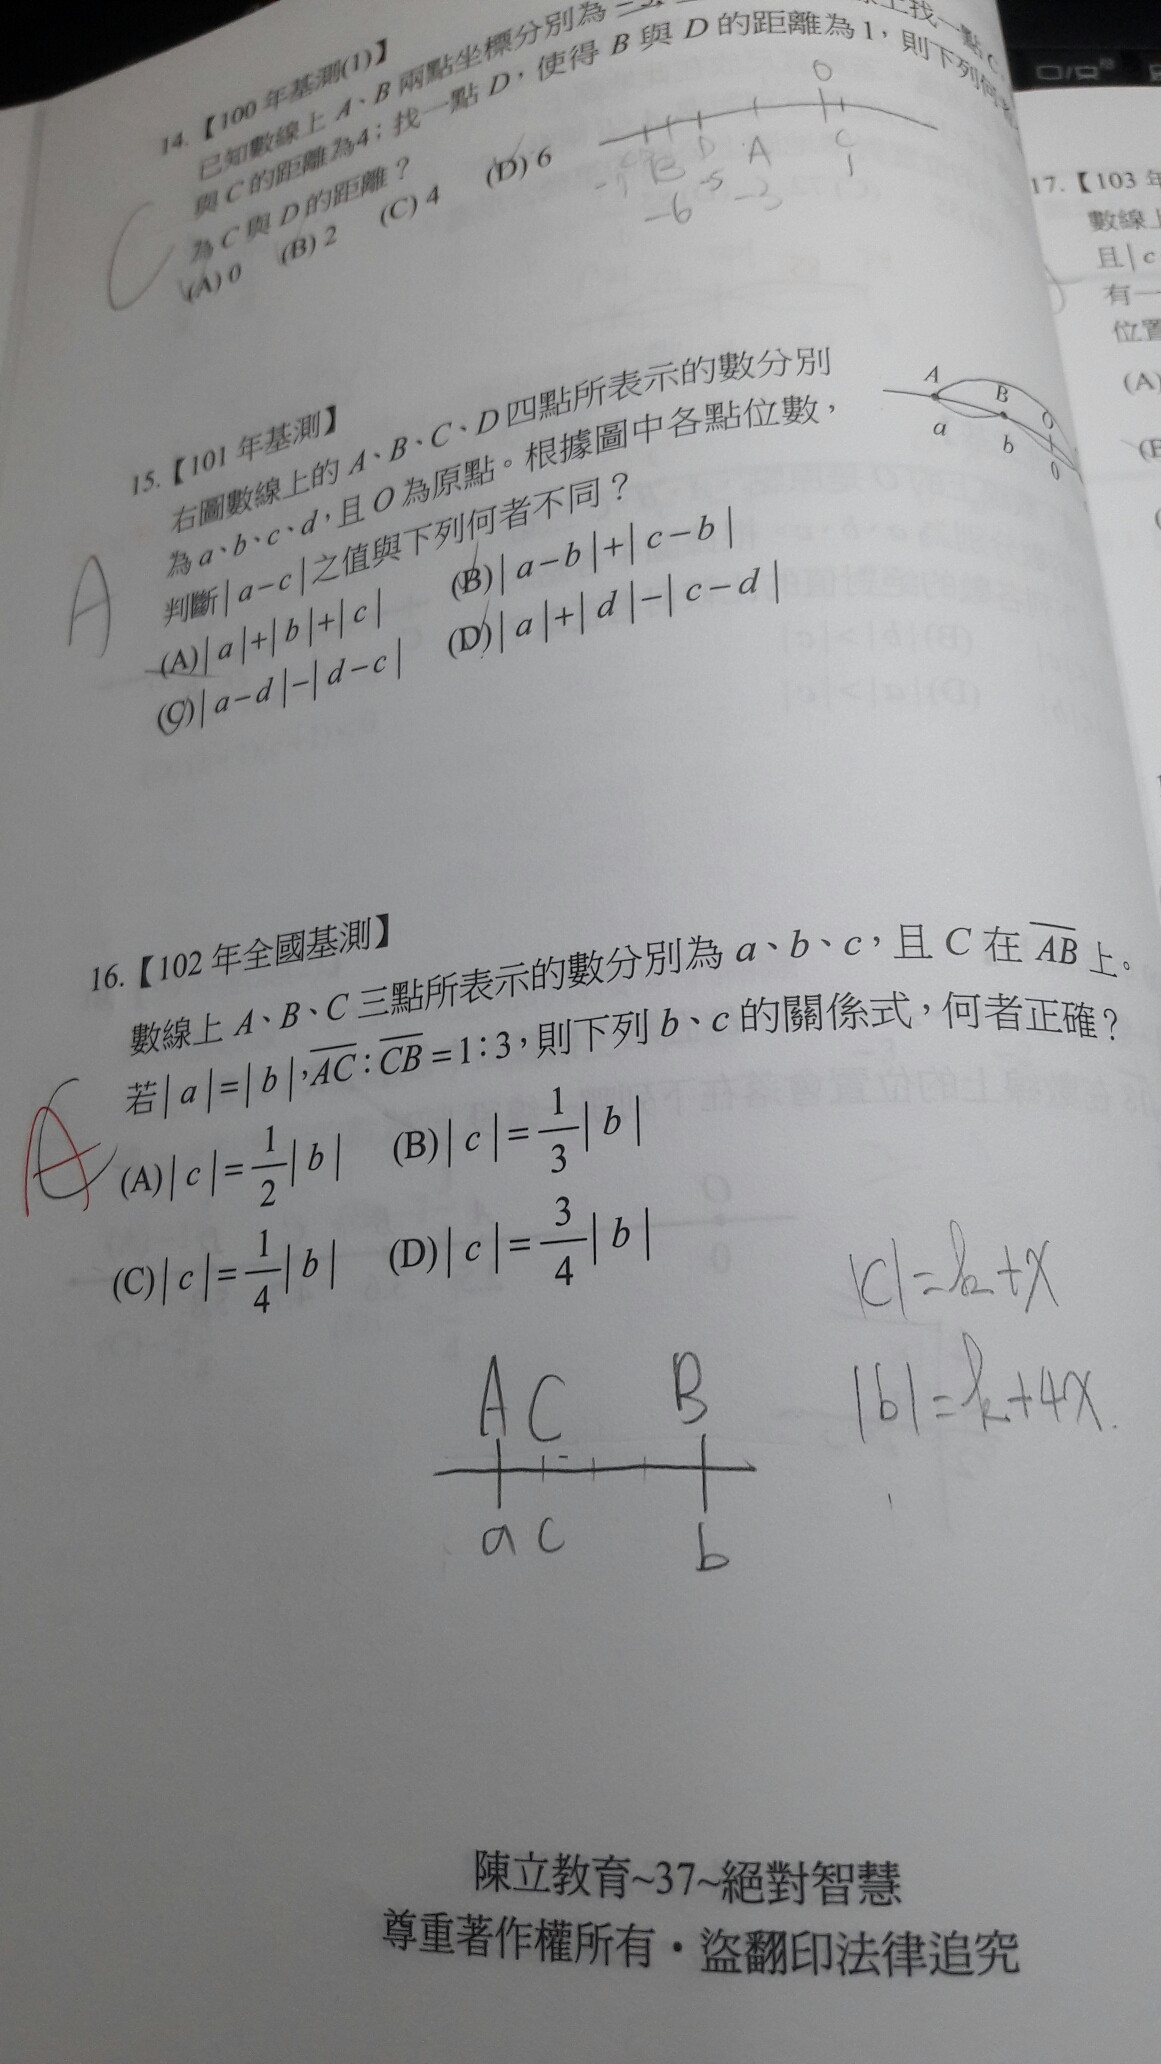 14.【100年基測(1)】
已知數線上 A、B 兩點坐標分別為
與 C 的距離為4；找一點 D，使得 B 與 D 的距離為1，則下列何
為 C 與 D 的距離？
(A) 0 (B) 2 (C) 4 (D) 6
C
O
D A C
B
-5 -3 1
-6
15.【101年基測】
右圖數線上的 A、B、C、D 四點所表示的數分別
為 a、b、c、d，且 O 為原點。根據圖中各點位數，
判斷|a−c|之值與下列何者不同？
(A)|a|+|b|+|c| (B)|a−b|+|c−b|
(C)|a−d|−|d−c| (D)|a|+|d|−|c−d|
A
A B O
a b 0
16.【102年全國基測】
數線上 A、B、C 三點所表示的數分別為 a、b、c，且 C 在 AB 上。
若|a|=|b|，AC：CB=1：3，則下列 b、c 的關係式，何者正確？
(A)|c|=1/2|b| (B)|c|=1/3|b|
(C)|c|=1/4|b| (D)|c|=3/4|b|
A
|c|=k+x
|b|=k+4x.
A C B
a c b
陳立教育~37~絕對智慧
尊重著作權所有・盜翻印法律追究
17.【103年
數線上
且|c
有一
位置
(A)